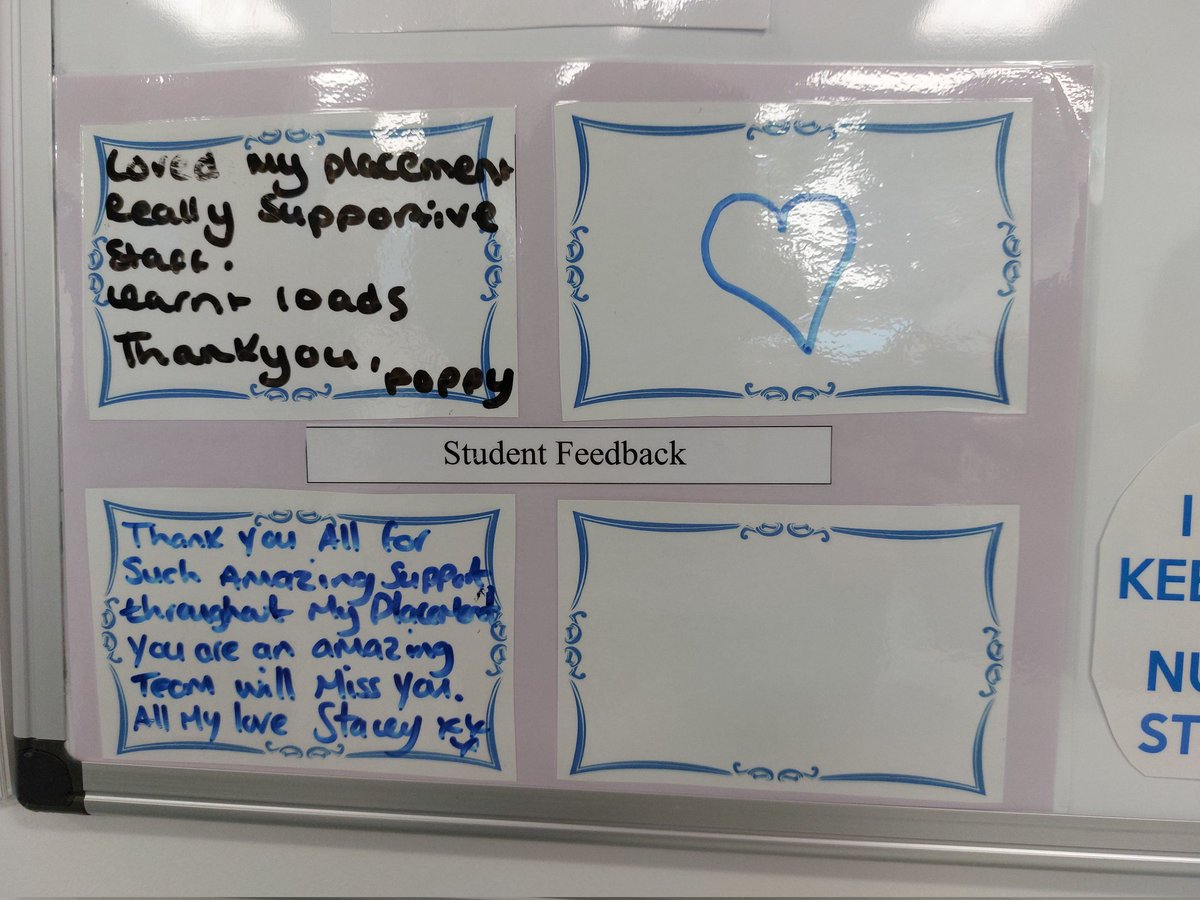 Loved my placement
Really supportive
staff.
learnt loads
Thankyou,
poppy
Student Feedback
Thank you All for
Such Amazing Support
throughout My Placement
you are an amazing
Team will Miss you.
All My love Stacey xxx
I
KEE
NU
ST